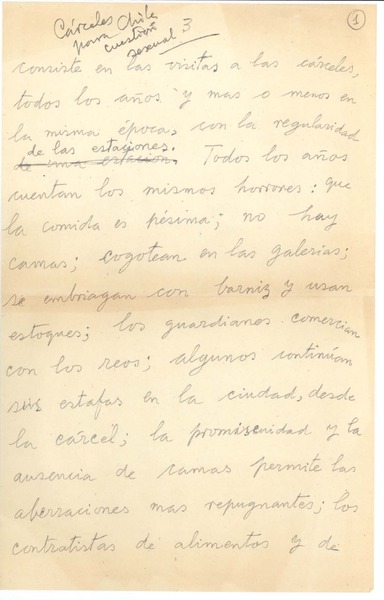 Cárceles Chile 3
para
cuestión
sexual
1
consiste en las visitas a las cárceles,
todos los años y mas o menos en
la misma época, con la regularidad
de las estaciones.
de una estacion. Todos los años
cuentan los mismos horrores: que
la comida es pésima; no hay
camas; cogotean en las galerias;
se embriagan con barniz y usan
estoques; los guardianes comercian
con los reos; algunos continúan
sus estafas en la ciudad, desde
la cárcel; la promiscuidad y la
ausencia de camas permite las
aberraciones mas repugnantes; los
contratistas de alimentos y de